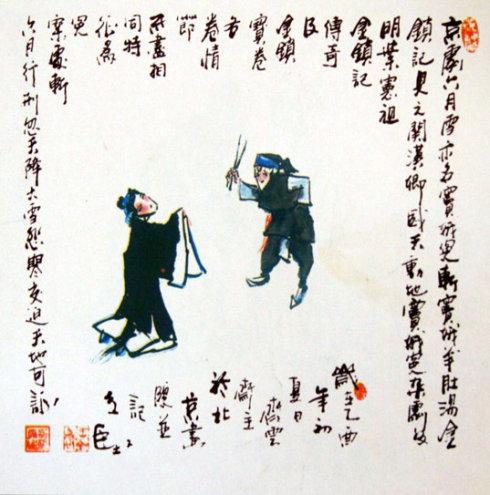 京劇六月雪亦名竇娥冤斬竇娥羊肚湯金
鎖記見元關漢卿感天動地竇娥冤雜劇及
明葉憲祖
金鎖記
傳奇
及
金鎖
寶卷
各
卷情
節
不盡相
同特
兒
處斬
六月行刑忽天降大雪怨交迫天地可
乙酉
年初
夏日
齊雲
齋主
於北
京畫
並
記